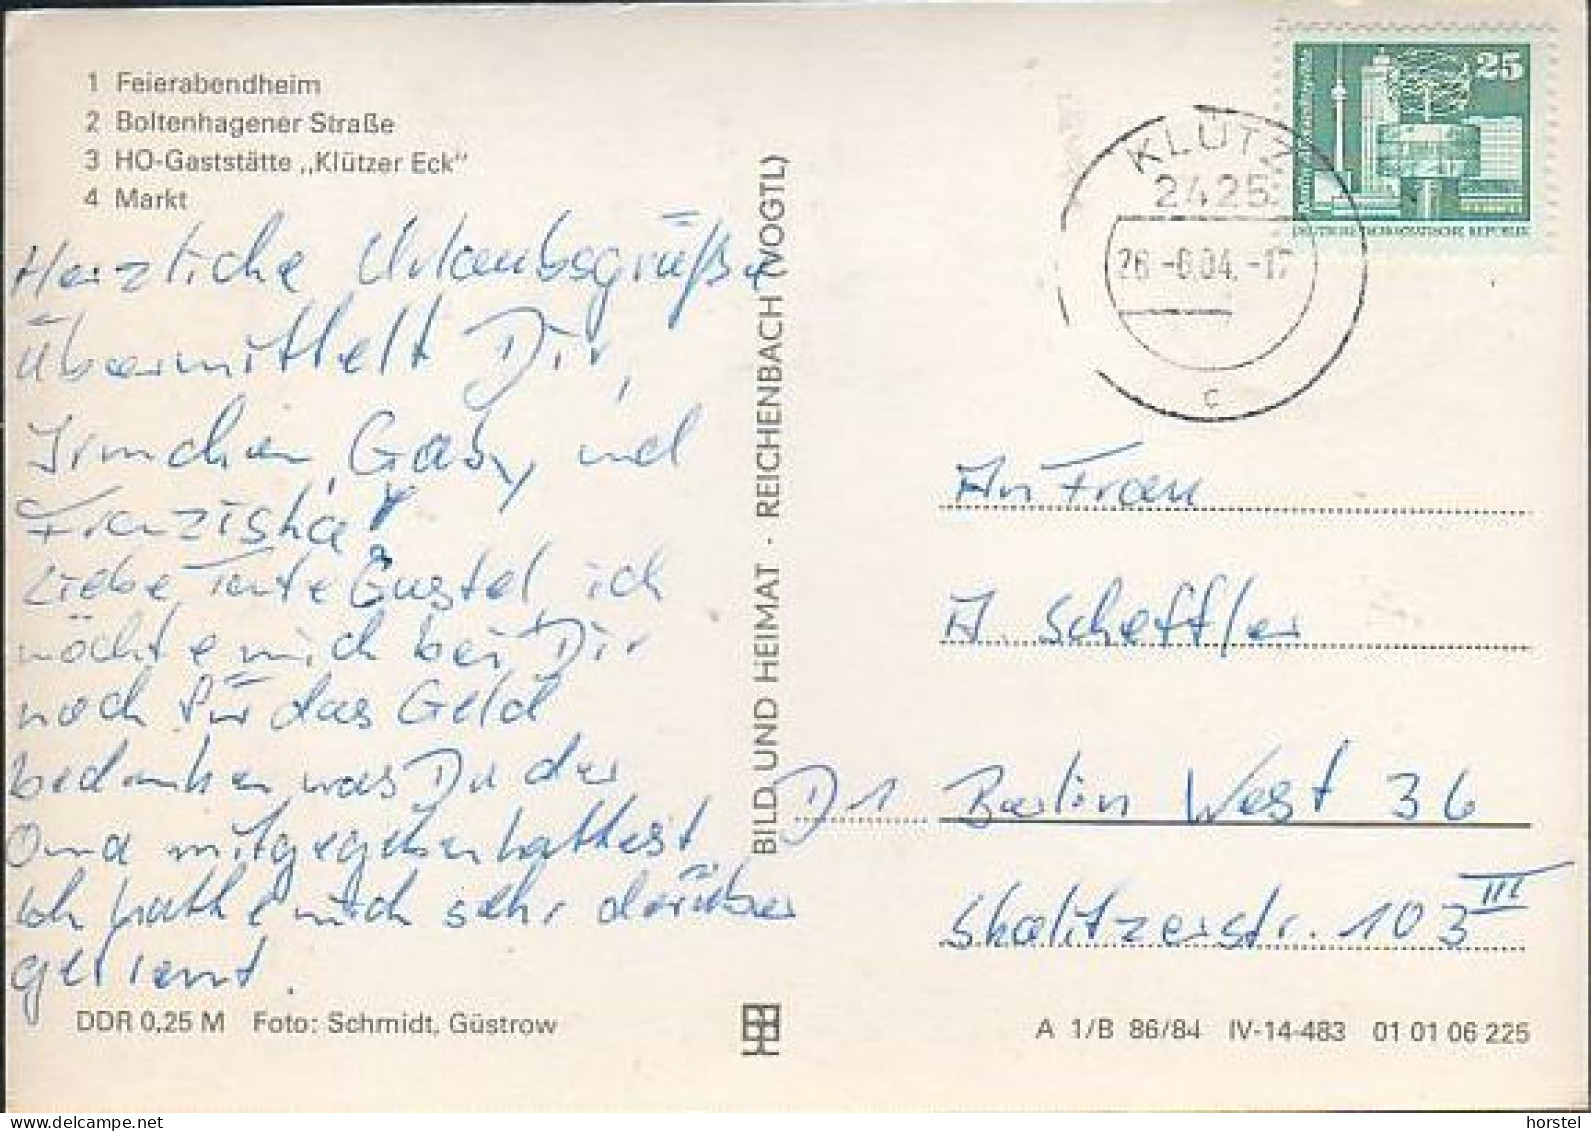 1 Feierabendheim
2 Boltenhagener Straße
3 HO-Gaststätte „Klützer Eck"
4 Markt
Herzliche Urlaubsgrüße
übermittelt Dir,
Irmchen, Gaby, und
Franziska!
Liebe Tante Gustel ich
möchte mich bei Dir
noch für das Geld
bedanken was Du der
Oma mitgegeben hattest
Ich hatte mich sehr darüber
gefreut.
DDR 0,25 M Foto: Schmidt, Güstrow
BILD UND HEIMAT · REICHENBACH (VOGTL)
25
DEUTSCHE DEMOKRATISCHE REPUBLIK
KLÜTZ
2425
c
An Frau
A. Scheffler
D 1 Berlin West 36
Skalitzerstr. 103 III
A 1/B 86/84 IV-14-483 01 01 06 225
horstel
www.delcampe.net